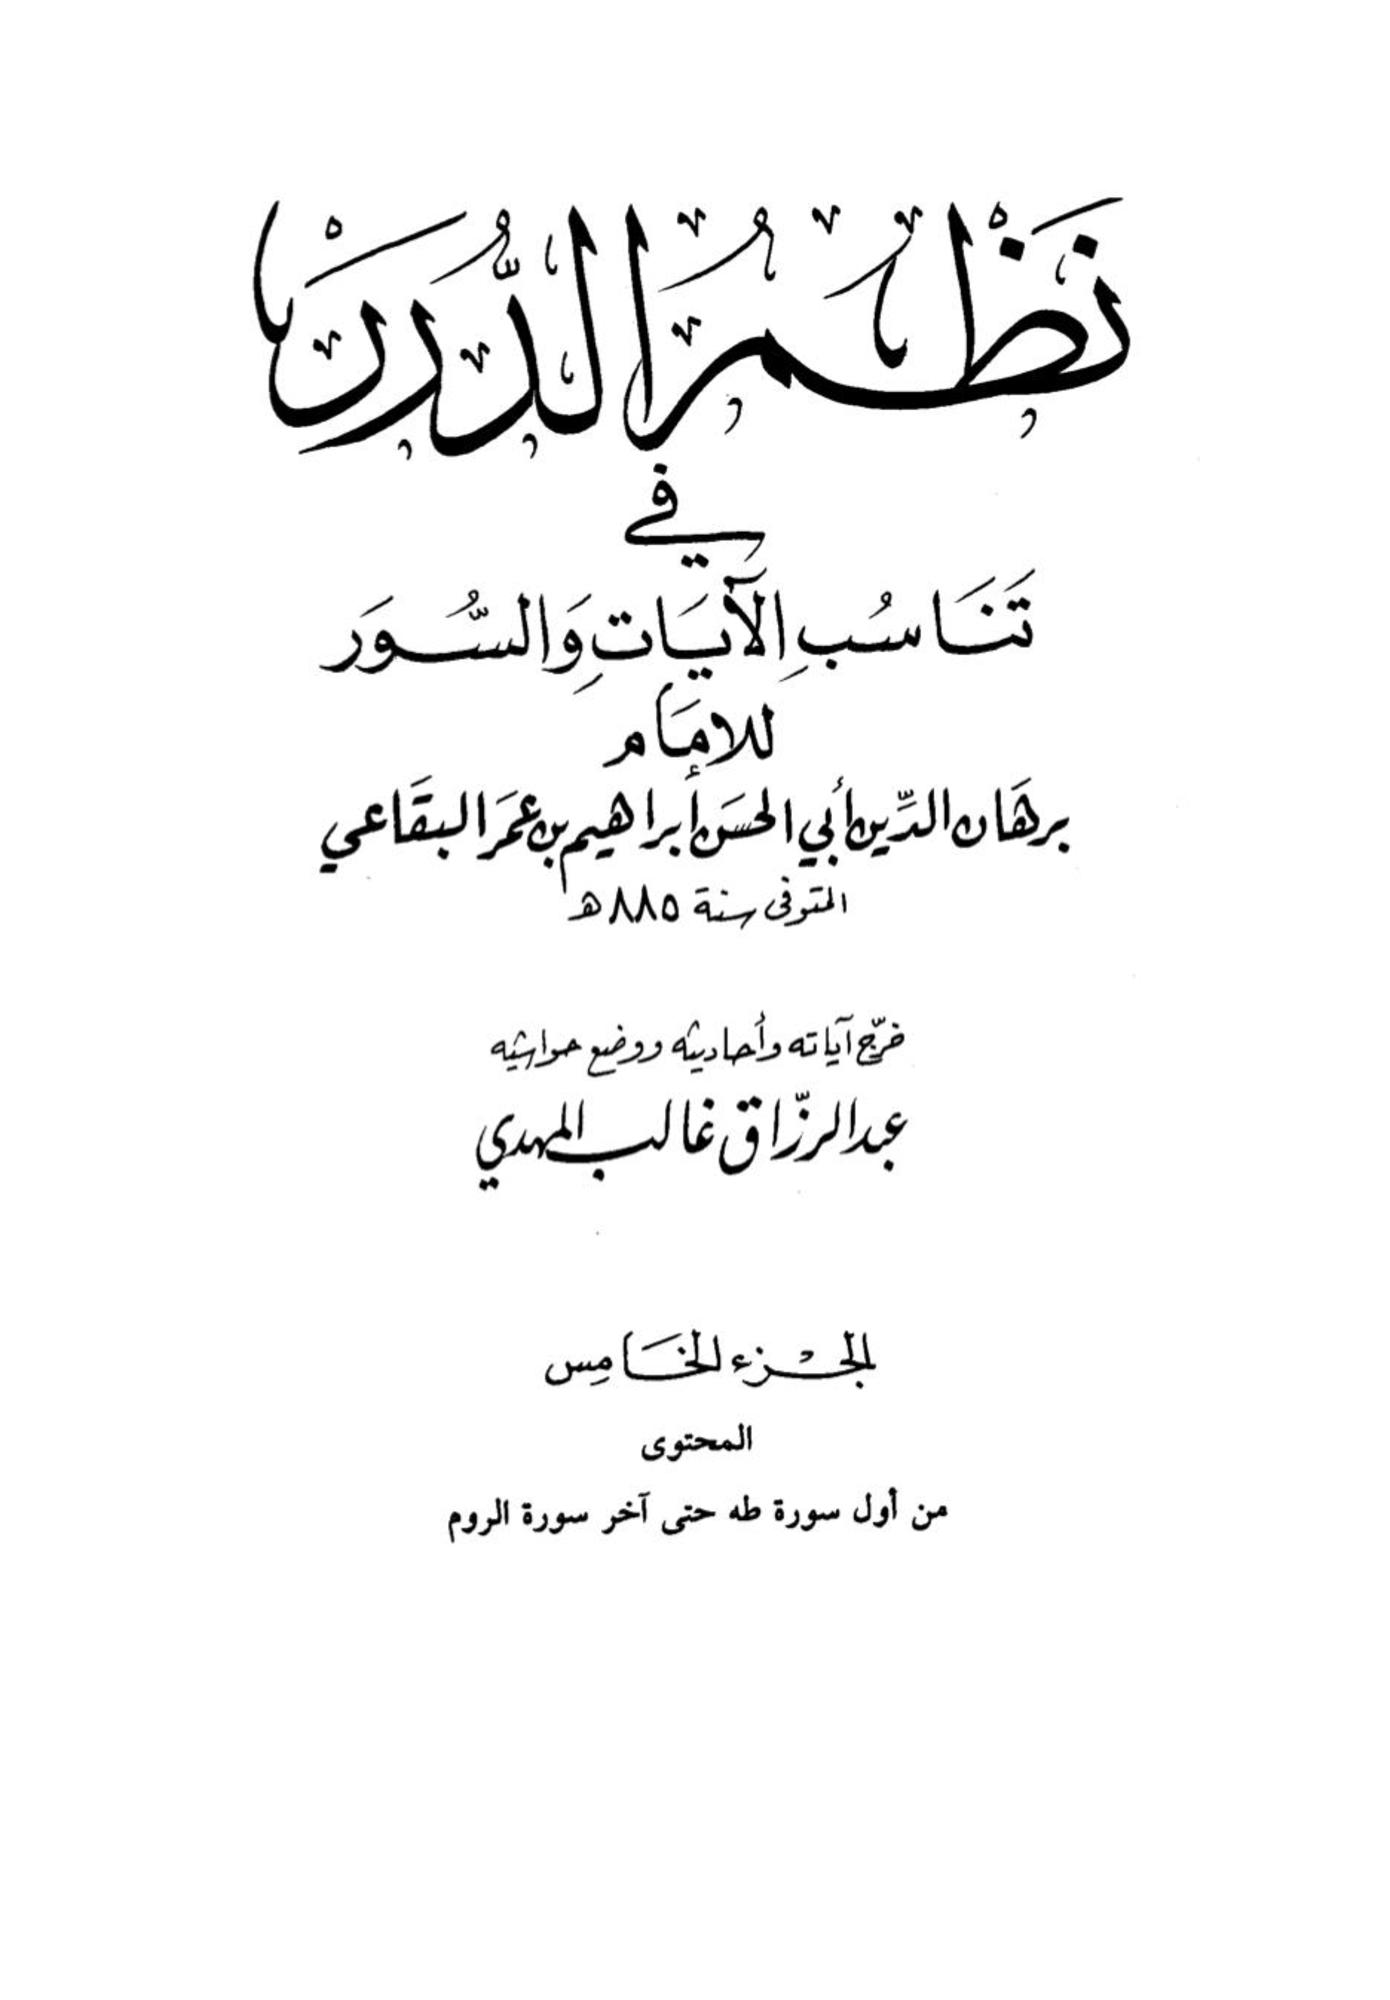 نَظْمُ الدُّرَرِ
في
تَنَاسُبِ الآيَاتِ وَالسُّوَر
للإمَام
برهَان الدِّين أبي الحسَن إبراهيم بن عمَر البقَاعي
المتوفى سنة ٨٨٥ هـ
خرّج آياته وأحاديثه ووضع حواشيه
عبد الرزّاق غالب المهدي
الجُزء الخَامِس
المحتوى
من أول سورة طه حتى آخر سورة الروم